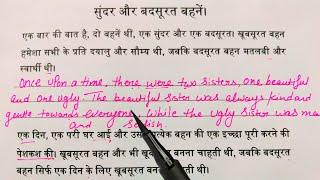 सुंदर और बदसूरत बहनें।
एक बार की बात है, दो बहनें थीं, एक सुंदर और एक बदसूरत। खूबसूरत बहन
हमेशा सभी के प्रति दयालु और सौम्य थी, जबकि बदसूरत बहन मतलबी और
स्वार्थी थी।
Once upon a time, there were two sisters, one beautiful
and one ugly. The beautiful sister was always kind and
gentle towards everyone, while the ugly sister was mean
and selfish.
एक दिन, एक परी घर आई और उस प्रत्येक बहन की एक इच्छा पूरी करने की
पेशकश की। खूबसूरत बहन और भी खूबसूरत बनना चाहती थी, जबकि बदसूरत
बहन सिर्फ एक दिन के लिए खूबसूरत बनना चाहती थी।